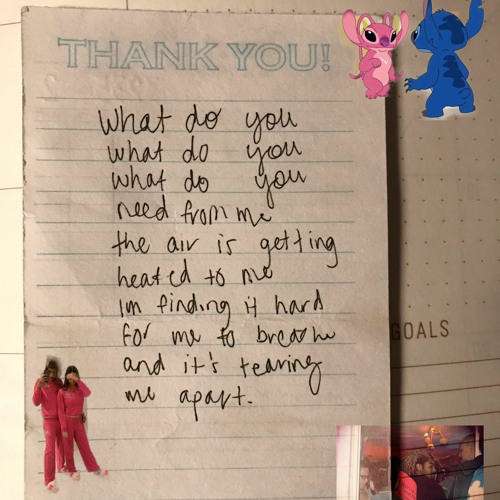 THANK YOU!
What do you
what do you
what do you
need from me
the air is getting
heated to me
im finding it hard
for me to breathe
and it's tearing
me apart.
GOALS